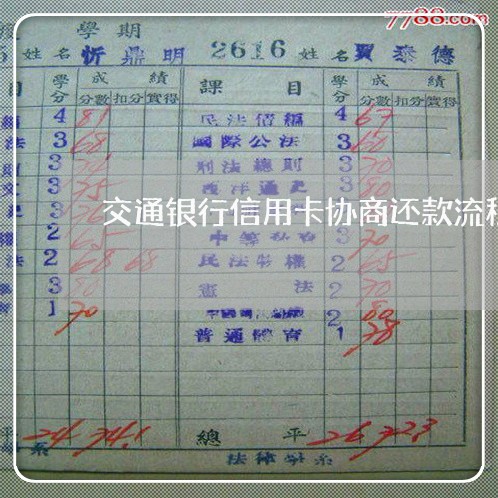 7788.com
學期
5 姓名 忻鼎明 2616 姓名 賈泰德
目 學分 成績 課目 學分 成績
分數 扣分 實得 分數 扣分 實得
4 81 民法債編 4 67
法 3 68 國際公法 3 60
3 刑法總則 3 70
3 75 西洋通史 3 80
交通银行信用卡协商还款流程
2 65 3 70
法 2 68 68 民法物權 2 65
3 80 憲法 2 70
1 70 2 80
普通體育 1 78
平 24 74.1 總平 26 72.3
系 法律學系